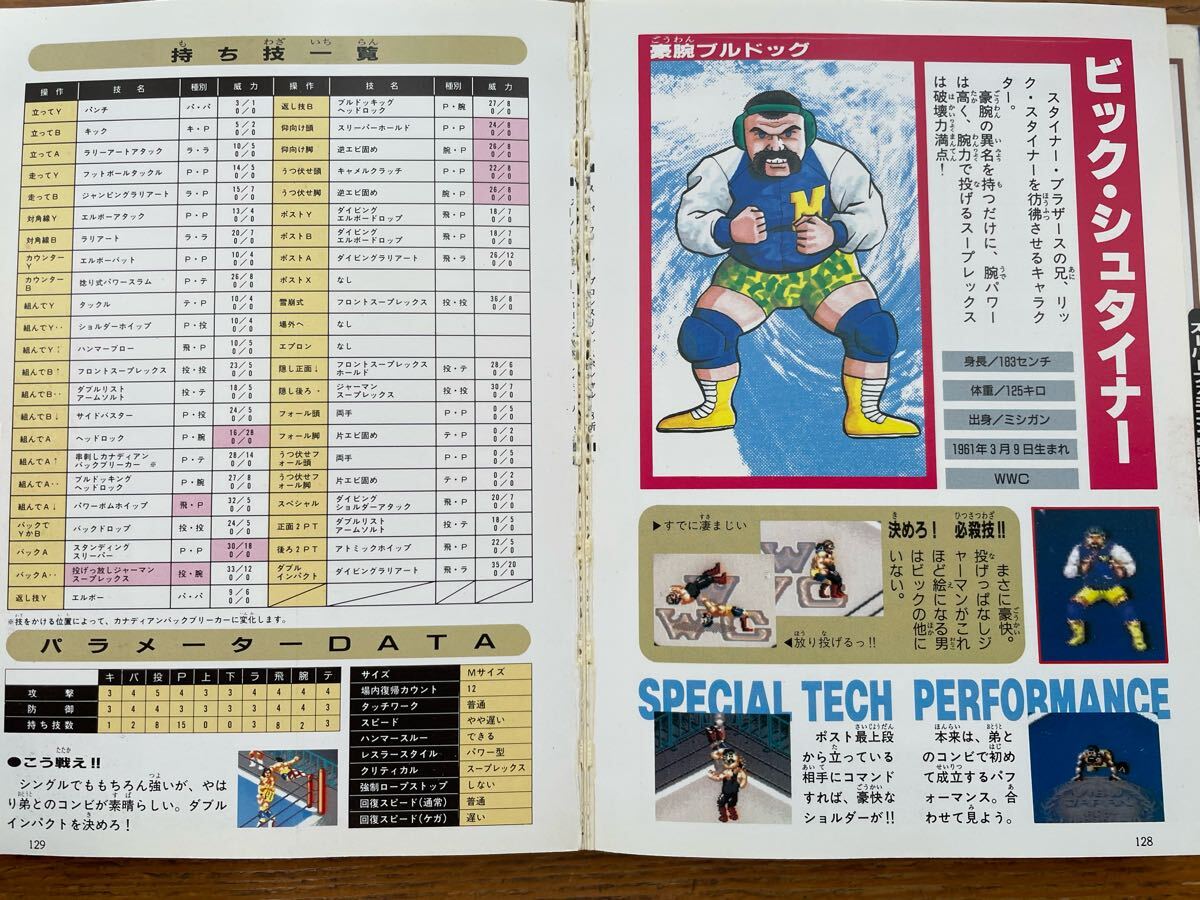 豪腕ブルドッグ
ごうわん
ビック・シュタイナー
スタイナー・ブラザースの兄、リッ
ク・スタイナーを彷彿させるキャラク
ター。
豪腕の異名を持つだけに、腕パワー
は高く、腕力で投げるスープレックス
は破壊力満点!
身長/183センチ
体重/125キロ
出身/ミシガン
1961年3月9日生まれ
WWC
決めろ! 必殺技!!
まさに豪快。
投げっぱなしジ
ャーマンがこれ
ほど絵になる男
はビックの他に
いない。
▶すでに凄まじい
◀放り投げるっ!!
SPECIAL TECH PERFORMANCE
ポスト最上段
から立っている
相手にコマンド
すれば、豪快な
ショルダーが!!
本来は、弟と
のコンビで初め
て成立するパフ
ォーマンス。合
わせて見よう。
128
持ち技一覧
操作 技名 種別 威力 操作 技名 種別 威力
立ってY パンチ パ・パ 3/1 0/0 返し技B ブルドッキングヘッドロック P・腕 27/8 0/0
立ってB キック キ・P 5/2 0/0 仰向け頭 スリーパーホールド P・P 24/8 0/0
立ってA ラリーアートアタック ラ・ラ 10/5 0/0 仰向け脚 逆エビ固め 腕・P 26/8 0/0
走ってY フットボールタックル P・P 14/5 0/0 うつ伏せ頭 キャメルクラッチ P・P 22/8 0/0
走ってB ジャンピングラリアート ラ・P 15/7 0/0 うつ伏せ脚 逆エビ固め 腕・P 26/8 0/0
対角線Y エルボーアタック P・P 13/4 0/0 ポストY ダイビングエルボードロップ 飛・P 18/7 0/0
対角線B ラリアート ラ・ラ 20/7 0/0 ポストB ダイビングエルボードロップ 飛・P 18/7 0/0
カウンターY エルボーバット P・P 10/4 0/0 ポストA ダイビングラリアート 飛・ラ 26/12 0/0
カウンターB 捻り式パワースラム P・テ 26/8 0/0 ポストX なし
組んでY タックル テ・P 10/4 0/0 雪崩式 フロントスープレックス 投・投 36/8 0/0
組んでY‥ ショルダーホイップ P・投 10/4 0/0 場外へ なし
組んでY↕ ハンマーブロー 飛・P 10/5 0/0 エプロン なし
組んでB↑ フロントスープレックス 投・投 23/5 0/0 隠し正面↓ フロントスープレックスホールド 投・テ 28/6 0/0
組んでB‥ ダブルリストアームソルト 投・テ 18/5 0/0 隠し後ろ・ ジャーマンスープレックス 投・投 30/7 0/0
組んでB↓ サイドバスター P・投 24/5 0/0 フォール頭 両手 P・P 0/5 0/0
組んでA ヘッドロック P・腕 16/28 0/0 フォール脚 片エビ固め テ・P 0/2 0/0
組んでA↑ 串刺しカナディアンバックブリーカー ※ P・テ 28/14 0/0 うつ伏せフォール頭 両手 P・P 0/5 0/0
組んでA‥ ブルドッキングヘッドロック P・腕 27/8 0/0 うつ伏せフォール脚 片エビ固め テ・P 0/2 0/0
組んでA↓ パワーボムホイップ 飛・P 32/5 0/0 スペシャル ダイビングショルダーアタック P・P 20/7 0/0
バックでYかB バックドロップ 投・投 24/5 0/0 正面2PT ダブルリストアームソルト 投・テ 18/5 0/0
バックA スタンディングスリーパー P・P 30/18 0/0 後ろ2PT アトミックホイップ 飛・P 22/5 0/0
バックA‥ 投げっ放しジャーマンスープレックス 投・腕 33/12 0/0 ダブルインパクト ダイビングラリアート 飛・ラ 35/20 0/0
返し技Y エルボー パ・パ 9/6 0/0
※技をかける位置によって、カナディアンバックブリーカーに変化します。
パラメーターDATA
キ パ 投 P 上 下 ラ 飛 腕 テ
攻撃 3 4 5 4 3 3 4 4 4 4
防御 3 4 4 4 3 3 4 4 4 4
持ち技数 1 2 8 15 0 0 3 8 2 3
サイズ Mサイズ
場内復帰カウント 12
タッチワーク 普通
スピード やや遅い
ハンマースルー できる
レスラースタイル パワー型
クリティカル スープレックス
強制ロープストップ しない
回復スピード(通常) 普通
回復スピード(ケガ) 遅い
●こう戦え!!
シングルでももちろん強いが、やは
り弟とのコンビが素晴らしい。ダブル
インパクトを決めろ!
129